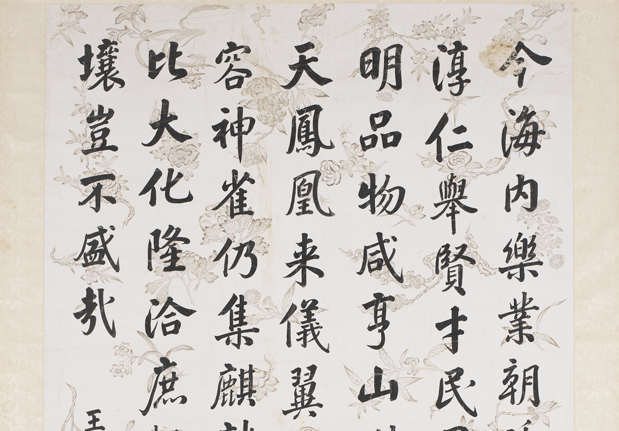 今海内樂業朝
淳仁舉賢才民
明品物咸亨山
天鳳凰来儀翼
容神雀仍集麒
比大化隆洽庶
壤豈不盛哉
王